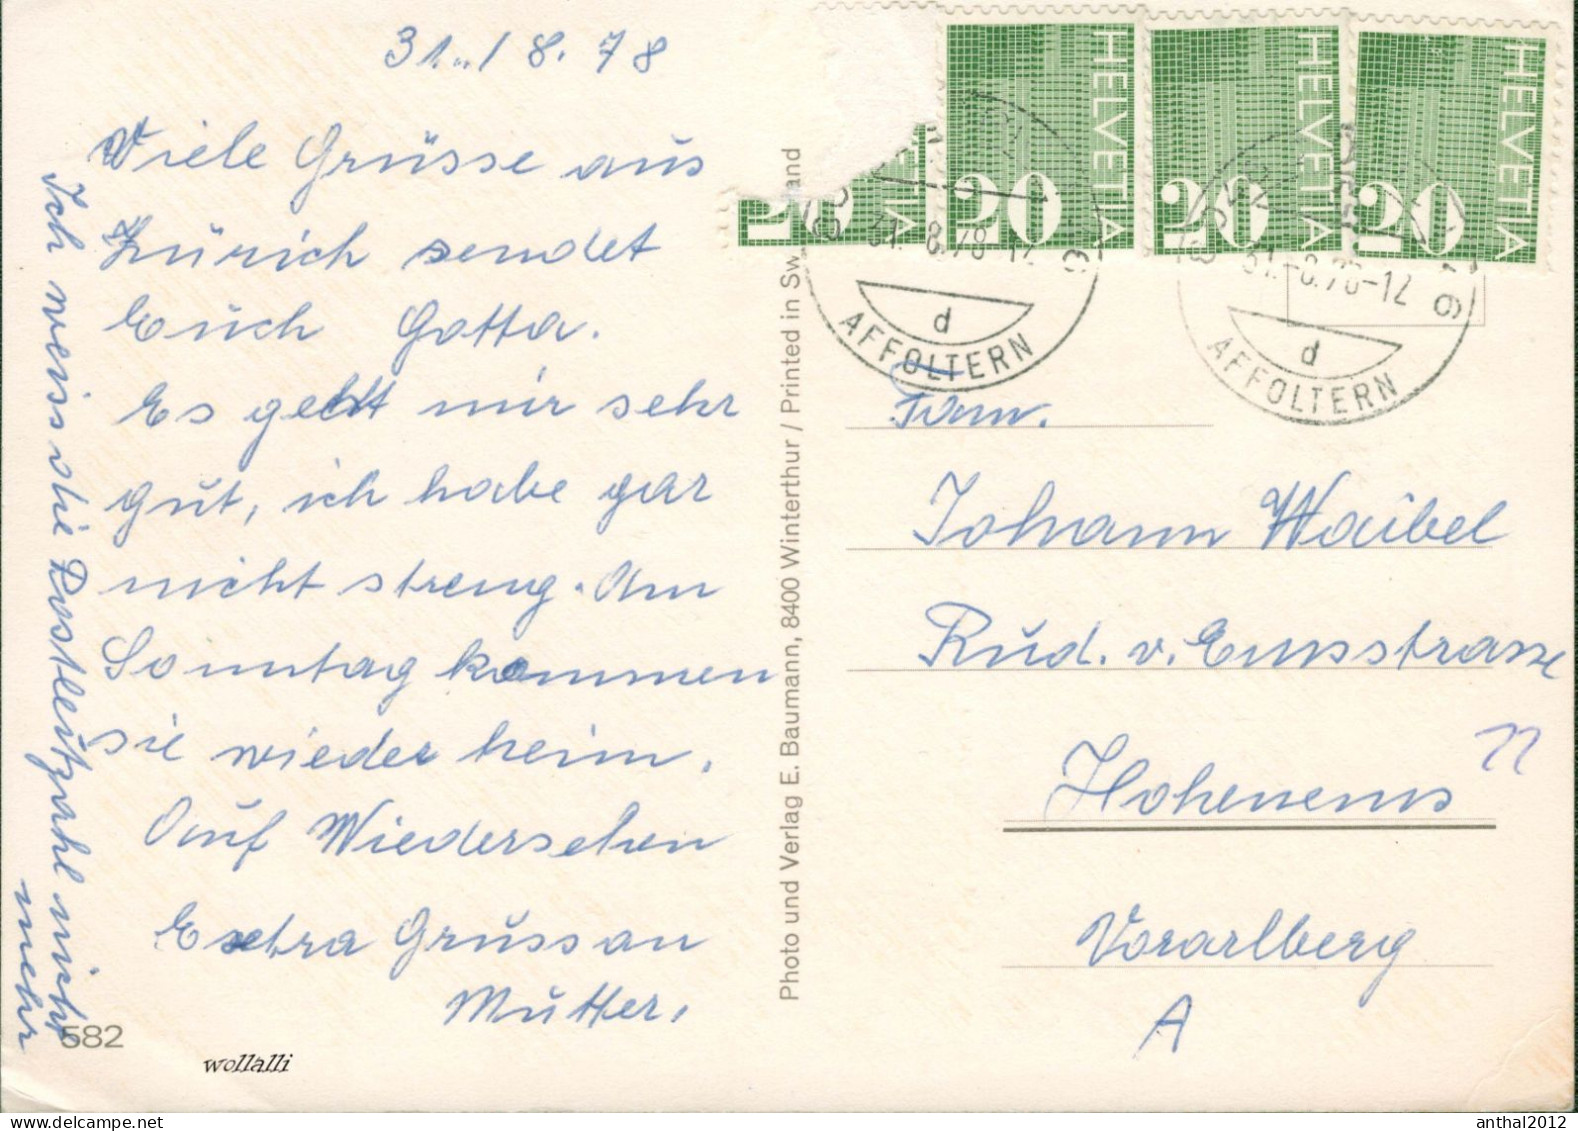 31. / 8. 78
Viele Grüsse aus
Zürich sendet
Euch Gotta.
Es geht mir sehr
gut, ich habe gar
nicht streng. Am
Sonntag kommen
sie wieder heim.
Auf Wiedersehen
Extra Gruss an
Mutter.
Ich weiss die Postleitzahl nicht
mehr
582
wollalli
Photo und Verlag E. Baumann, 8400 Winterthur / Printed in Sw and
HELVETIA 20
HELVETIA 20
HELVETIA 20
31.-8.78-12
d
AFFOLTERN
31.-8.78-12
d
AFFOLTERN
Fam.
Johann Waibel
Rud. v. Emsstrasse
11
Hohenems
Vorarlberg
A
anthal2012